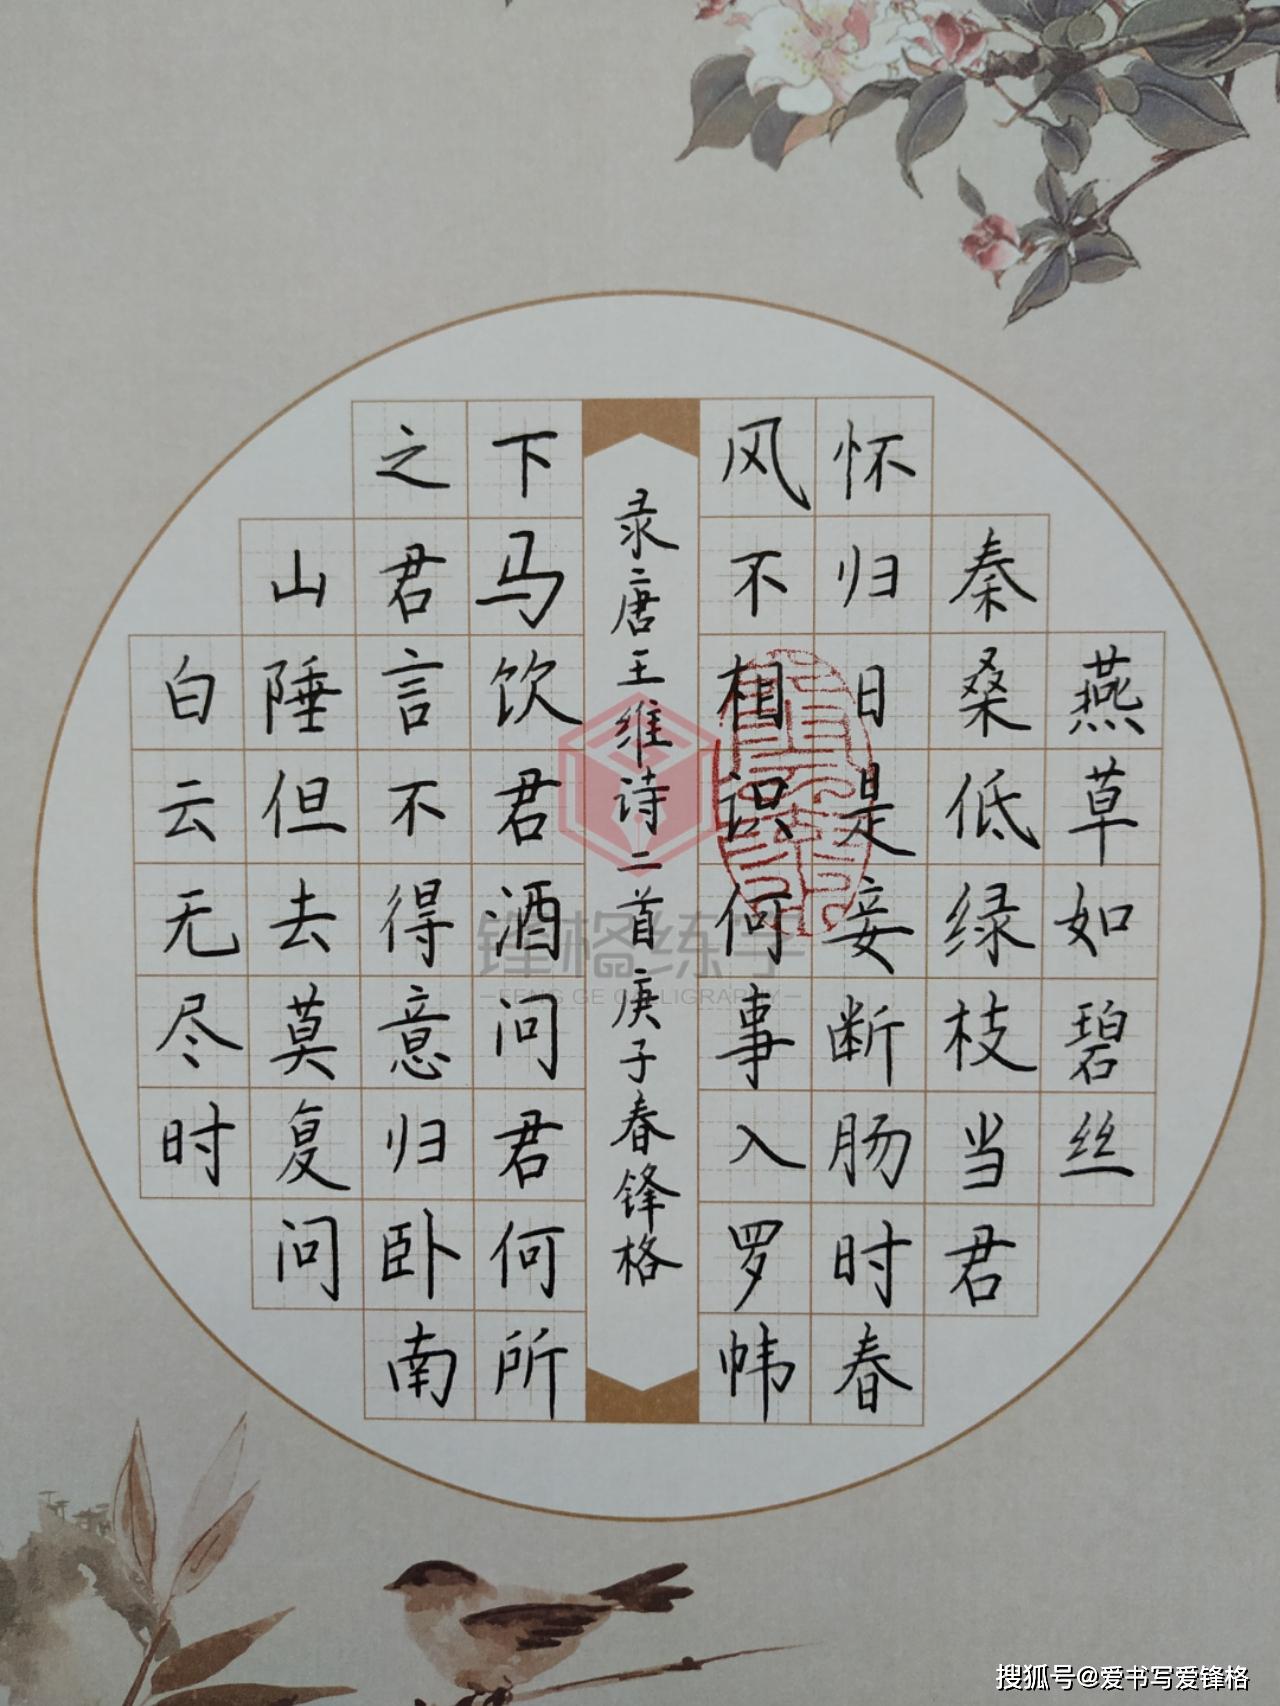 燕草如碧丝
秦桑低绿枝当君
怀归日是妾断肠时春
风不相识何事入罗帏
录唐王维诗二首庚子春锋格
下马饮君酒问君何所
之君言不得意归卧南
山陲但去莫复问
白云无尽时
锋格练字
FENG GE CALLIGRAPHY
搜狐号@爱书写爱锋格